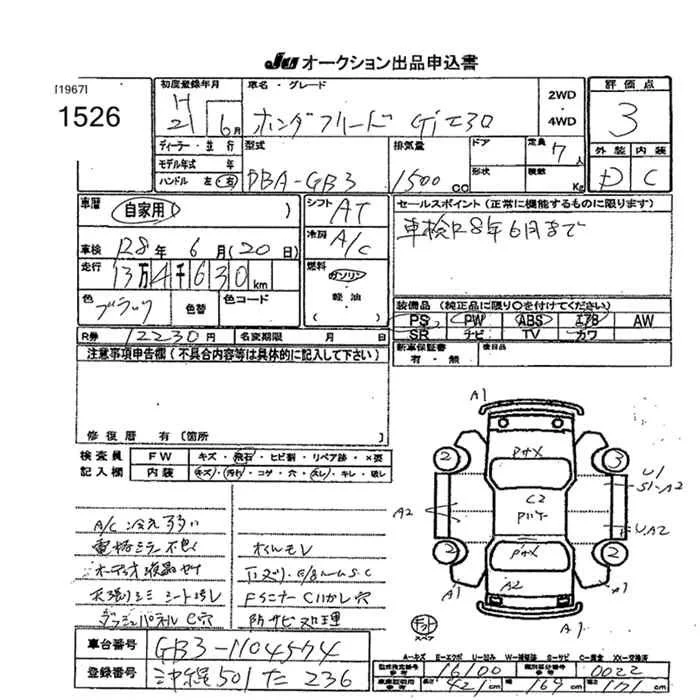 JU オークション出品申込書
[1967]
1526
初度登録年月 車名・グレード 評価点
H 21 6月 ホンダフリード Gi エアロ 2WD・4WD 3
ディーラー・並行 型式 排気量 ドア 定員 7人 外装 内装
モデル年式 年 形状 積数 Kg
ハンドル 左・右 DBA-GB3 1500 cc D C
車歴 自家用 ( ) シフト AT セールスポイント(正常に機能するものに限ります)
冷房 A/C 車検R8年6月まで
車検 R8年 6月(20日)
走行 13万4千630km 燃料 ガソリン・軽油 ( )
色 ブラック 色替 色コード 装備品(純正品に限り○を付けてください)
PS PW ABS エアB AW
SR ナビ TV カワ
R券 12230円 名変期限 月 日
新車保証書 有・無 後日品
注意事項申告欄(不具合内容等は具体的に記入して下さい)
修復歴 有(箇所
検査員記入欄 FW キズ・飛石・ヒビ割・リペア跡・×要
内装 キズ・汚れ・コゲ・穴・スレ・キレ・破レ
A1
Pキメ
2 3
U1
S1-A2
C2
A2 Pハゲ
UA2
2 Pキメ 2
A2
A1 A1
A1
スペア
A/C 冷え弱い
電格ミラー不良
オーディオ液晶
天張シミ シート汚レ
ダッシュパネルC穴
オイルモレ
F S.C
Fライナー C1カシ穴
防サビ処理
A-キズ E-エクボ U-凹み W-補修跡 S-サビ C-腐食 XX-交換済
車台番号 GB3-1104574
登録番号 沖縄501た236
型式指定番号 参考 16100 類別区分番号 参考 0022
長さ 421cm 幅 169cm 高さ 171cm